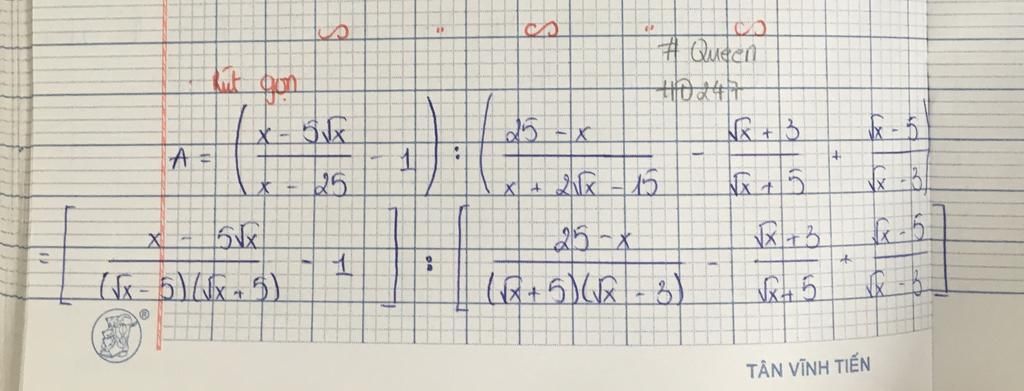 # Queen
HD247
Rút gọn
A = ( (x - 5√x)/(x - 25) - 1 ) : ( (25 - x)/(x + 2√x - 15) - (√x + 3)/(√x + 5) + (√x - 5)/(√x - 3) )
= [ (x - 5√x)/((√x - 5)(√x + 5)) - 1 ] : [ (25 - x)/((√x + 5)(√x - 3)) - (√x + 3)/(√x + 5) + (√x - 5)/(√x - 3) ]
®
TÂN VĨNH TIẾN